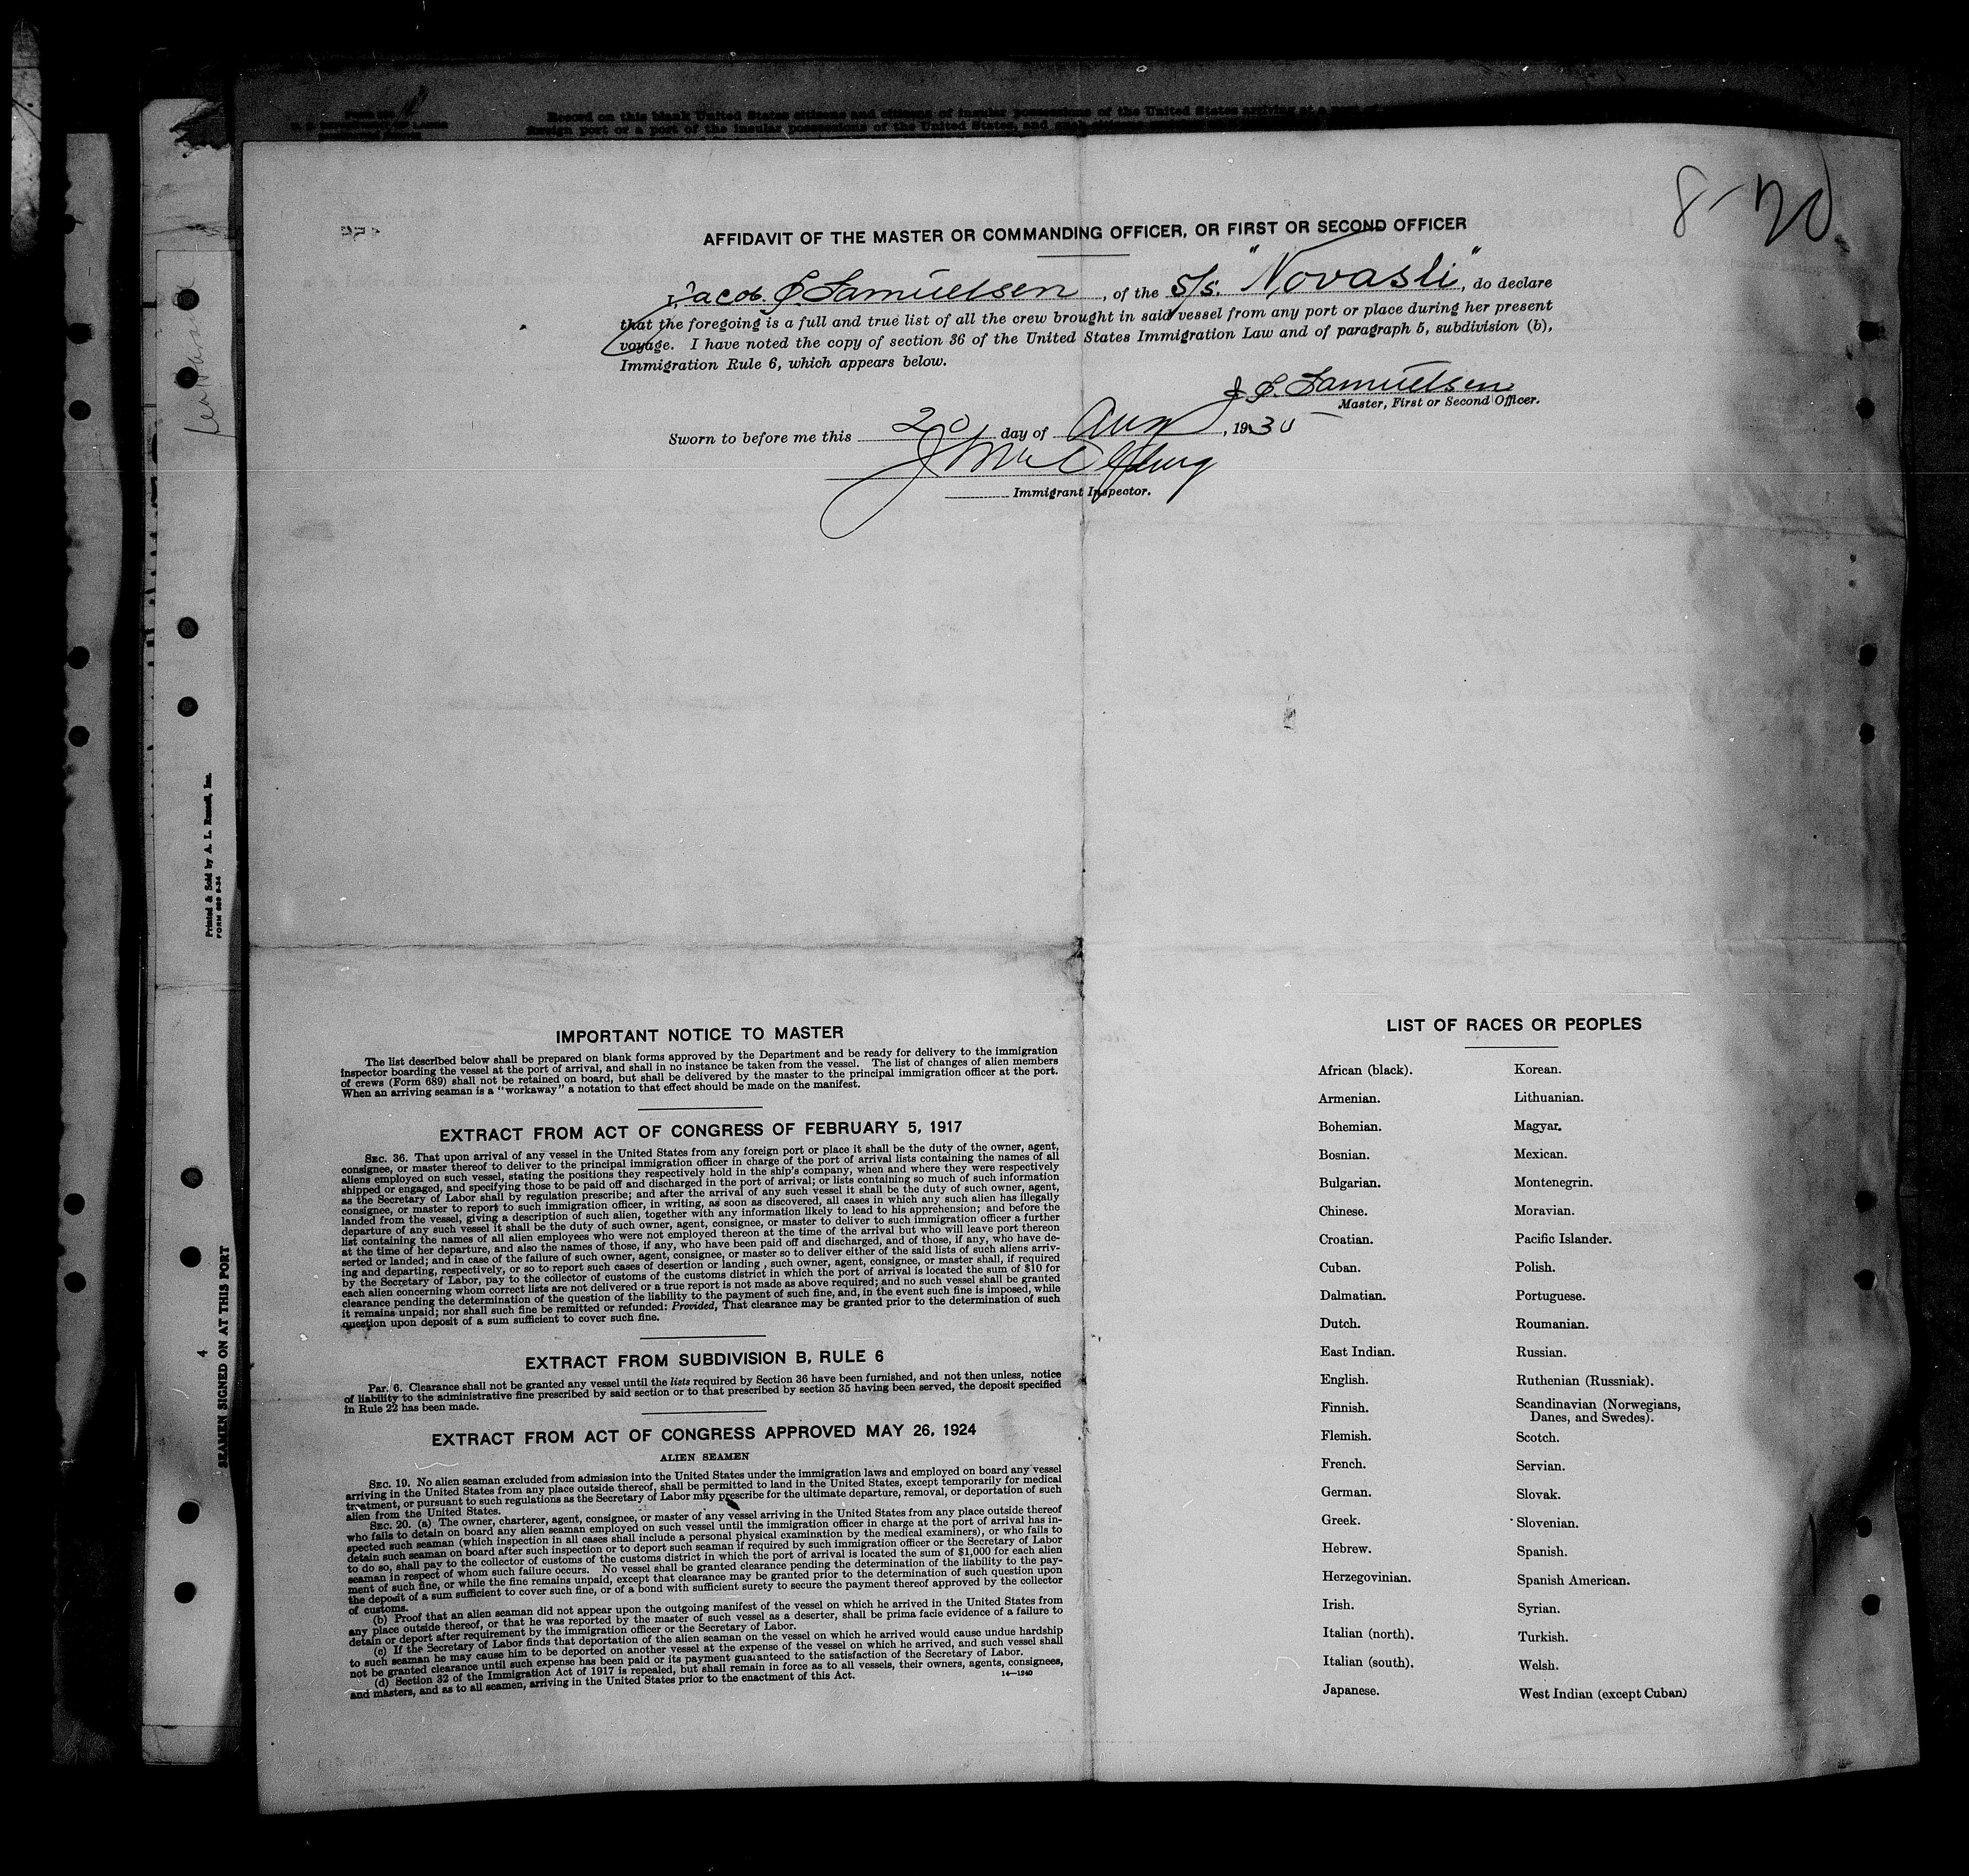 Record on this blank United States citizens and citizens of insular possessions of the United States arriving at a port of
foreign port or a port of the insular possessions of the United States, and
8-20
AFFIDAVIT OF THE MASTER OR COMMANDING OFFICER, OR FIRST OR SECOND OFFICER
Jacob Samuelsen, of the S/S. "Novasli", do declare
that the foregoing is a full and true list of all the crew brought in said vessel from any port or place during her present
voyage. I have noted the copy of section 36 of the United States Immigration Law and of paragraph 5, subdivision (b),
Immigration Rule 6, which appears below.
Samuelsen
Master, First or Second Officer.
Sworn to before me this 20 day of Aug, 193
Immigrant Inspector.
IMPORTANT NOTICE TO MASTER
The list described below shall be prepared on blank forms approved by the Department and be ready for delivery to the immigration
inspector boarding the vessel at the port of arrival, and shall in no instance be taken from the vessel. The list of changes of alien members
of crews (Form 689) shall not be retained on board, but shall be delivered by the master to the principal immigration officer at the port.
When an arriving seaman is a "workaway" a notation to that effect should be made on the manifest.
EXTRACT FROM ACT OF CONGRESS OF FEBRUARY 5, 1917
SEC. 36. That upon arrival of any vessel in the United States from any foreign port or place it shall be the duty of the owner, agent,
consignee, or master thereof to deliver to the principal immigration officer in charge of the port of arrival lists containing the names of all
aliens employed on such vessel, stating the positions they respectively hold in the ship's company, when and where they were respectively
shipped or engaged, and specifying those to be paid off and discharged in the port of arrival; or lists containing so much of such information
as the Secretary of Labor shall by regulation prescribe; and after the arrival of any such vessel it shall be the duty of such owner, agent,
consignee, or master to report to such immigration officer, in writing, as soon as discovered, all cases in which any such alien has illegally
landed from the vessel, giving a description of such alien, together with any information likely to lead to his apprehension; and before the
departure of any such vessel it shall be the duty of such owner, agent, consignee, or master to deliver to such immigration officer a further
list containing the names of all alien employees who were not employed thereon at the time of the arrival but who will leave port thereon
at the time of her departure, and also the names of those, if any, who have been paid off and discharged, and of those, if any, who have de-
serted or landed; and in case of the failure of such owner, agent, consignee, or master so to deliver either of the said lists of such aliens arriv-
ing and departing, respectively, or so to report such cases of desertion or landing, such owner, agent, consignee, or master shall, if required
by the Secretary of Labor, pay to the collector of customs of the customs district in which the port of arrival is located the sum of $10 for
each alien concerning whom correct lists are not delivered or a true report is not made as above required; and no such vessel shall be granted
clearance pending the determination of the question of the liability to the payment of such fine, and, in the event such fine is imposed, while
it remains unpaid; nor shall such fine be remitted or refunded: Provided, That clearance may be granted prior to the determination of such
question upon deposit of a sum sufficient to cover such fine.
EXTRACT FROM SUBDIVISION B, RULE 6
Par. 6. Clearance shall not be granted any vessel until the lists required by Section 36 have been furnished, and not then unless, notice
of liability to the administrative fine prescribed by said section or to that prescribed by section 35 having been served, the deposit specified
in Rule 22 has been made.
EXTRACT FROM ACT OF CONGRESS APPROVED MAY 26, 1924
ALIEN SEAMEN
SEC. 19. No alien seaman excluded from admission into the United States under the immigration laws and employed on board any vessel
arriving in the United States from any place outside thereof, shall be permitted to land in the United States, except temporarily for medical
treatment, or pursuant to such regulations as the Secretary of Labor may prescribe for the ultimate departure, removal, or deportation of such
alien from the United States.
SEC. 20. (a) The owner, charterer, agent, consignee, or master of any vessel arriving in the United States from any place outside thereof
who fails to detain on board any alien seaman employed on such vessel until the immigration officer in charge at the port of arrival has in-
spected such seaman (which inspection in all cases shall include a personal physical examination by the medical examiners), or who fails to
detain such seaman on board after such inspection or to deport such seaman if required by such immigration officer or the Secretary of Labor
to do so, shall pay to the collector of customs of the customs district in which the port of arrival is located the sum of $1,000 for each alien
seaman in respect of whom such failure occurs. No vessel shall be granted clearance pending the determination of the liability to the pay-
ment of such fine, or while the fine remains unpaid, except that clearance may be granted prior to the determination of such question upon
the deposit of a sum sufficient to cover such fine, or of a bond with sufficient surety to secure the payment thereof approved by the collector
of customs.
(b) Proof that an alien seaman did not appear upon the outgoing manifest of the vessel on which he arrived in the United States from
any place outside thereof, or that he was reported by the master of such vessel as a deserter, shall be prima facie evidence of a failure to
detain or deport after requirement by the immigration officer or the Secretary of Labor.
(c) If the Secretary of Labor finds that deportation of the alien seaman on the vessel on which he arrived would cause undue hardship
to such seaman he may cause him to be deported on another vessel at the expense of the vessel on which he arrived, and such vessel shall
not be granted clearance until such expense has been paid or its payment guaranteed to the satisfaction of the Secretary of Labor.
(d) Section 32 of the Immigration Act of 1917 is repealed, but shall remain in force as to all vessels, their owners, agents, consignees,
and masters, and as to all seamen, arriving in the United States prior to the enactment of this Act.
14—1240
LIST OF RACES OR PEOPLES
African (black). Korean.
Armenian. Lithuanian.
Bohemian. Magyar.
Bosnian. Mexican.
Bulgarian. Montenegrin.
Chinese. Moravian.
Croatian. Pacific Islander.
Cuban. Polish.
Dalmatian. Portuguese.
Dutch. Roumanian.
East Indian. Russian.
English. Ruthenian (Russniak).
Finnish. Scandinavian (Norwegians,
Danes, and Swedes).
Flemish. Scotch.
French. Servian.
German. Slovak.
Greek. Slovenian.
Hebrew. Spanish.
Herzegovinian. Spanish American.
Irish. Syrian.
Italian (north). Turkish.
Italian (south). Welsh.
Japanese. West Indian (except Cuban)
Printed & Sold by A. L. Russell, Inc.
FORM 689 9-34
4
SEAMEN SIGNED ON AT THIS PORT